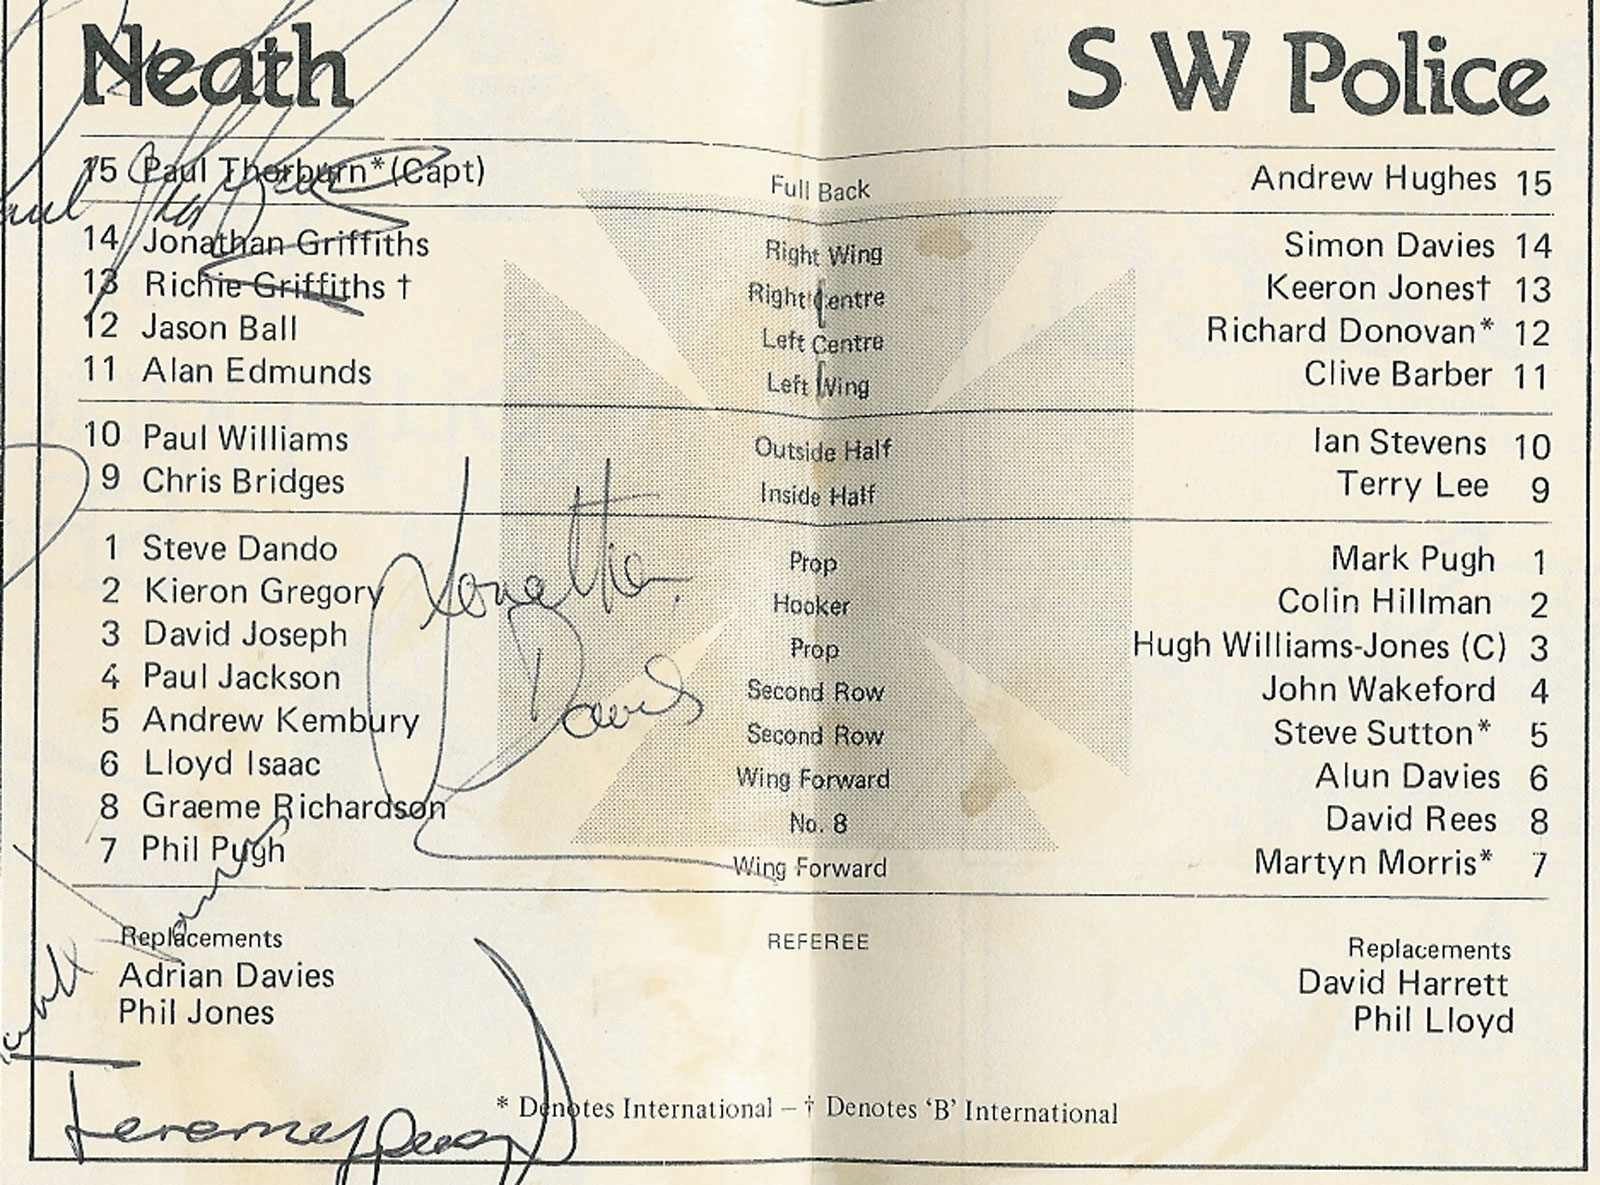 Neath S W Police
15 Paul Thorburn* (Capt) Full Back Andrew Hughes 15
14 Jonathan Griffiths Right Wing Simon Davies 14
13 Richie Griffiths † Right Centre Keeron Jones† 13
12 Jason Ball Left Centre Richard Donovan* 12
11 Alan Edmunds Left Wing Clive Barber 11
10 Paul Williams Outside Half Ian Stevens 10
9 Chris Bridges Inside Half Terry Lee 9
1 Steve Dando Prop Mark Pugh 1
2 Kieron Gregory Hooker Colin Hillman 2
3 David Joseph Prop Hugh Williams-Jones (C) 3
4 Paul Jackson Second Row John Wakeford 4
5 Andrew Kembury Second Row Steve Sutton* 5
6 Lloyd Isaac Wing Forward Alun Davies 6
8 Graeme Richardson No. 8 David Rees 8
7 Phil Pugh Wing Forward Martyn Morris* 7
Jonathan
Davies
Replacements REFEREE Replacements
Adrian Davies David Harrett
Phil Jones Phil Lloyd
* Denotes International – † Denotes ‘B’ International
Jeremy